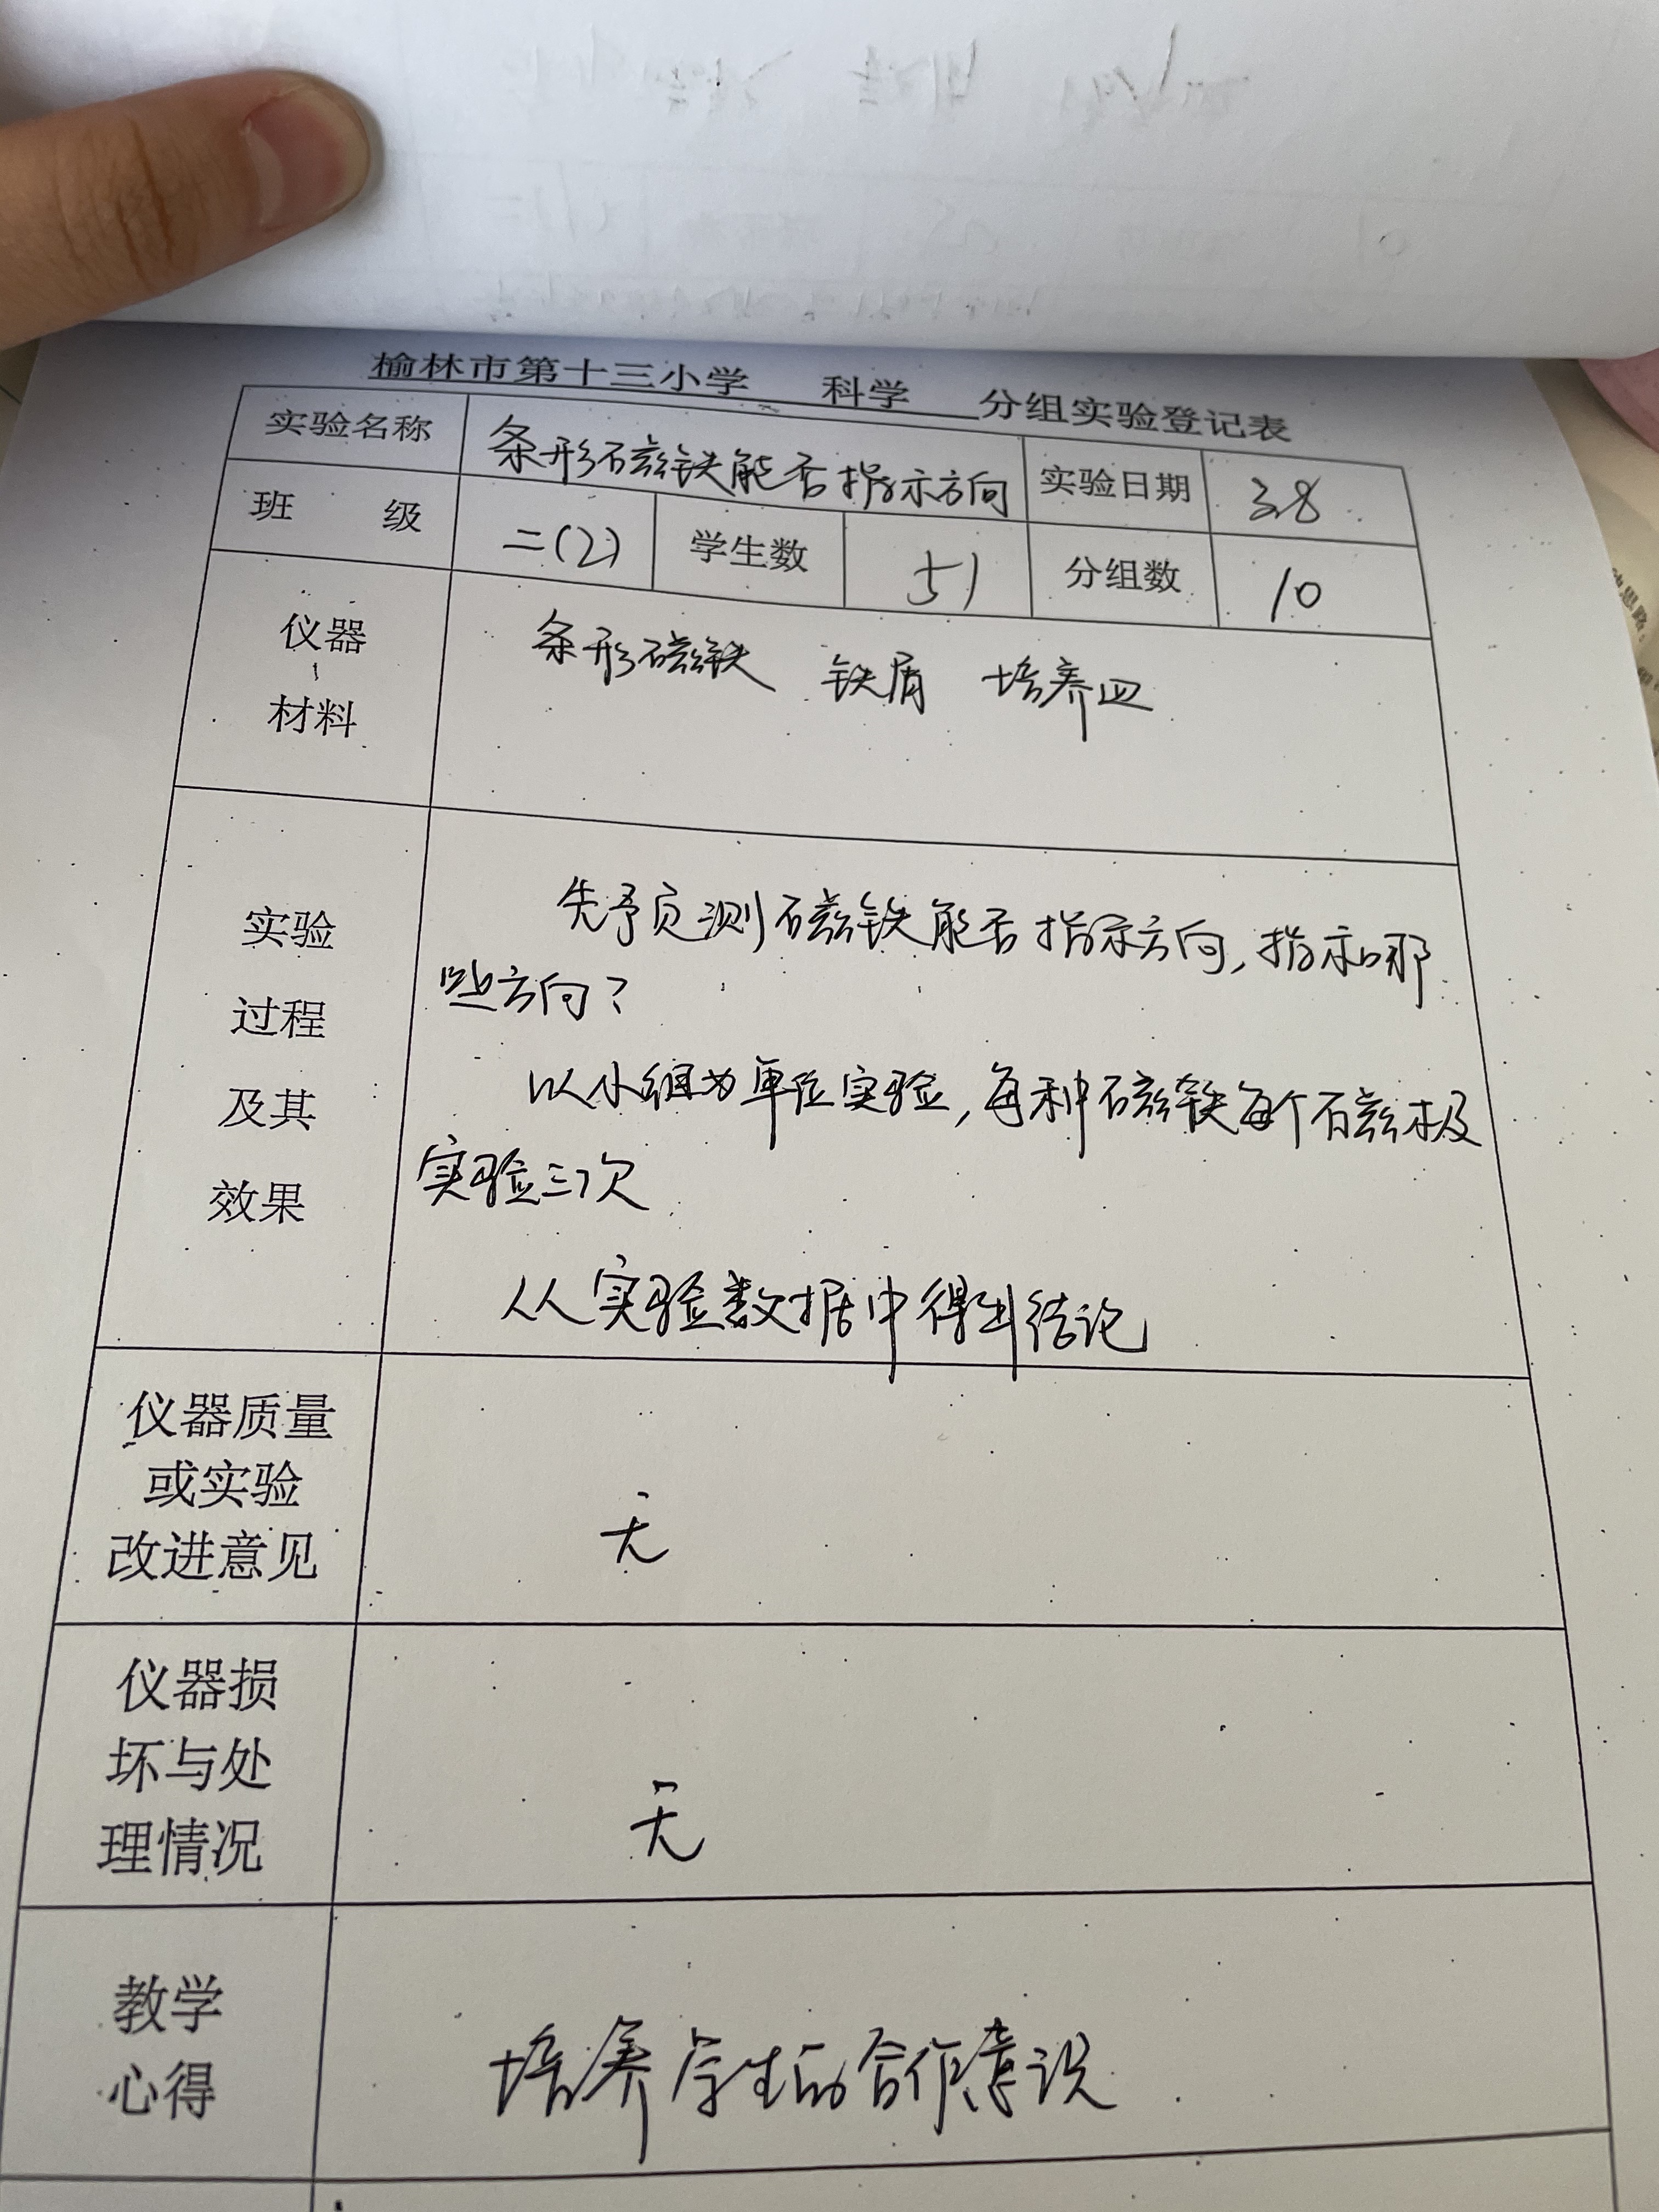 榆林市第十三小学 科学 分组实验登记表
实验名称 条形磁铁能否指示方向 实验日期 3.8
班 级 二(2) 学生数 51 分组数 10
仪器
材料
条形磁铁 铁屑 培养皿
实验
过程
及其
效果
先予页测磁铁能否指示方向,指示哪
些方向?
以小组为单位实验,每种磁铁每个磁极
实验三次
从实验数据中得出结论
仪器质量
或实验
改进意见
无
仪器损
坏与处
理情况
无
教学
心得
培养学生的合作意识